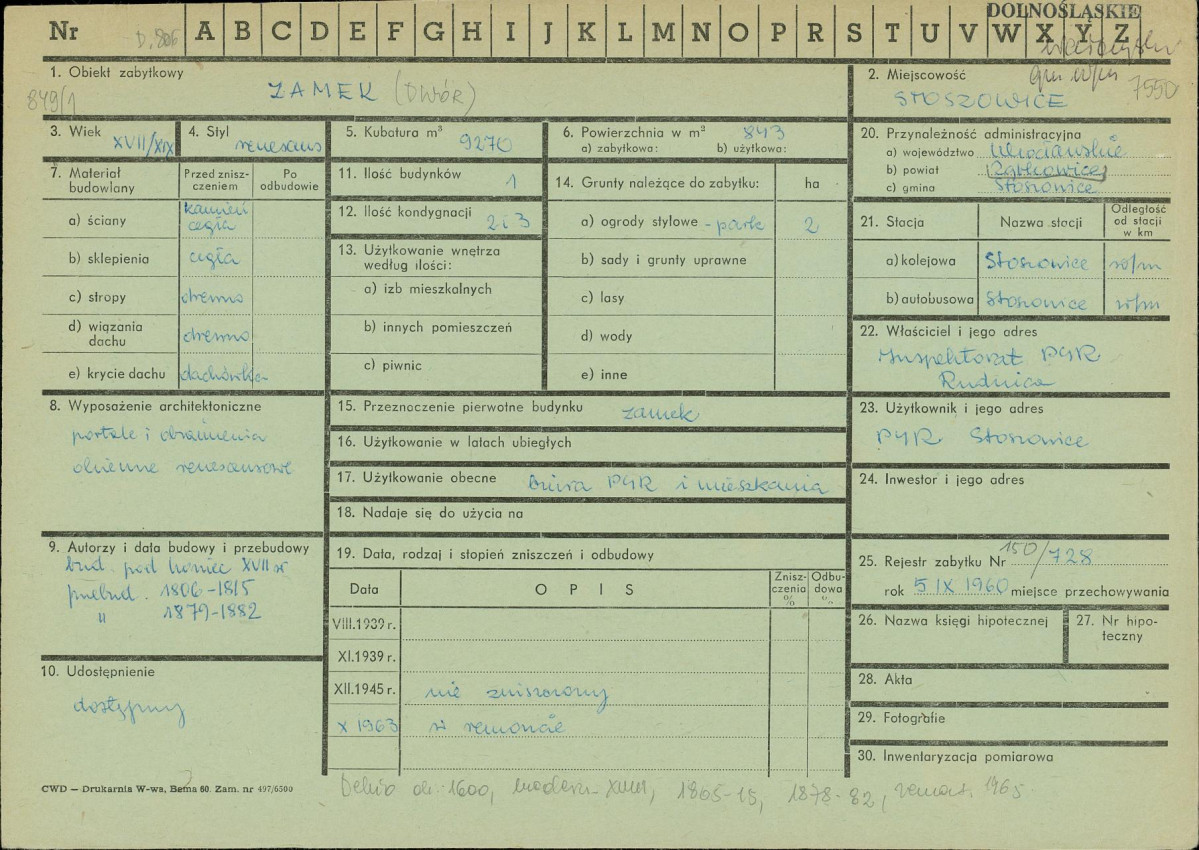 DOLNOŚLĄSKIE
Nr D.806 A B C D E F G H I J K L M N O P R S T U V W X Y Z
849/1
7550
1. Obiekt zabytkowy
ZAMEK (DWÓR)
2. Miejscowość
STOSZOWICE
3. Wiek
XVII/XIX
4. Styl
renesans
5. Kubatura m³
9270
6. Powierzchnia w m² 843
a) zabytkowa: b) użytkowa:
20. Przynależność administracyjna
a) województwo
b) powiat Ząbkowice
c) gmina Stoszowice
7. Materiał budowlany
Przed zniszczeniem
Po odbudowie
a) ściany kamień cegła
b) sklepienia cegła
c) stropy drewno
d) wiązania dachu drewno
e) krycie dachu dachówka
11. Ilość budynków 1
12. Ilość kondygnacji 2 i 3
13. Użytkowanie wnętrza według ilości:
a) izb mieszkalnych
b) innych pomieszczeń
c) piwnic
14. Grunty należące do zabytku: ha
a) ogrody stylowe - park 2
b) sady i grunty uprawne
c) lasy
d) wody
e) inne
21. Stacja Nazwa stacji Odległość od stacji w km
a) kolejowa Stoszowice w/m
b) autobusowa Stoszowice w/m
22. Właściciel i jego adres
Inspektorat PGR
Rudnica
8. Wyposażenie architektoniczne
portale i obramienia
okienne renesansowe
15. Przeznaczenie pierwotne budynku zamek
16. Użytkowanie w latach ubiegłych
17. Użytkowanie obecne biura PGR i mieszkania
18. Nadaje się do użycia na
23. Użytkownik i jego adres
PGR Stoszowice
24. Inwestor i jego adres
9. Autorzy i data budowy i przebudowy
bud. pod koniec XVII w
przebud. 1806-1815
" 1879-1882
19. Data, rodzaj i stopień zniszczeń i odbudowy
Data OPIS Zniszczenia % Odbudowa %
VIII.1939 r.
XI.1939 r.
XII.1945 r. nie zniszczony
X 1963 w remoncie
25. Rejestr zabytku Nr 150/728
rok 5 IX 1960 miejsce przechowywania
26. Nazwa księgi hipotecznej
27. Nr hipoteczny
28. Akta
29. Fotografie
30. Inwentaryzacja pomiarowa
10. Udostępnienie
dostępny
CWD — Drukarnia W-wa, Bema 60. Zam. nr 497/6500
Dehio ok. 1600, modern. XVIII, 1865-15, 1878-82, remont. 1965